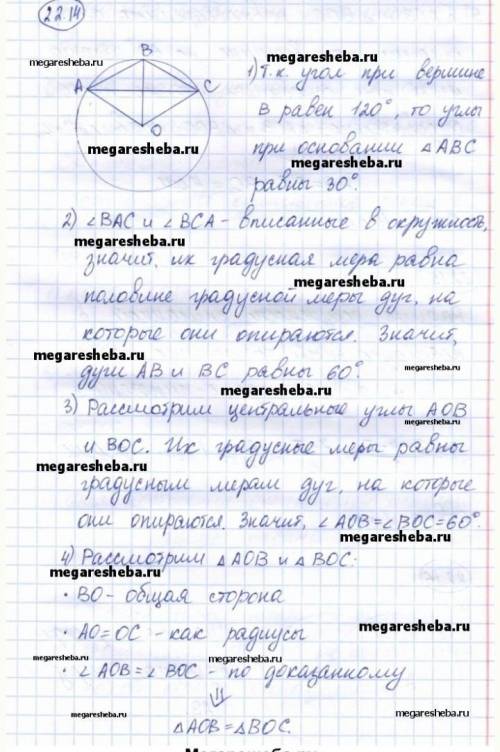 22.14
megaresheba.ru
megaresheba.ru
B
A
C
O
1) Т.к. угол при вершине
B равен 120°, то углы
megaresheba.ru
при основании △ABC
megaresheba.ru
равны 30°.
2) ∠BAC и ∠BCA - вписанные в окружность,
megaresheba.ru
значит, их градусная мера равна
megaresheba.ru
половине градусной меры дуг, на
которые они опираются. Значит,
megaresheba.ru
дуги AB и BC равны 60°.
megaresheba.ru
megaresheba.ru
3) Рассмотрим центральные углы AOB
megaresheba.ru
и BOC. Их градусные меры равны
megaresheba.ru
градусным мерам дуг, на которые
они опираются. Значит, ∠AOB=∠BOC=60°.
megaresheba.ru
4) Рассмотрим △AOB и △BOC:
megaresheba.ru
· BO - общая сторона
megaresheba.ru
· AO=OC - как радиусы
megaresheba.ru
megaresheba.ru
· ∠AOB=∠BOC - по доказанному
⇓
megaresheba.ru
megaresheba.ru
△AOB=△BOC.
Megaresheba.ru